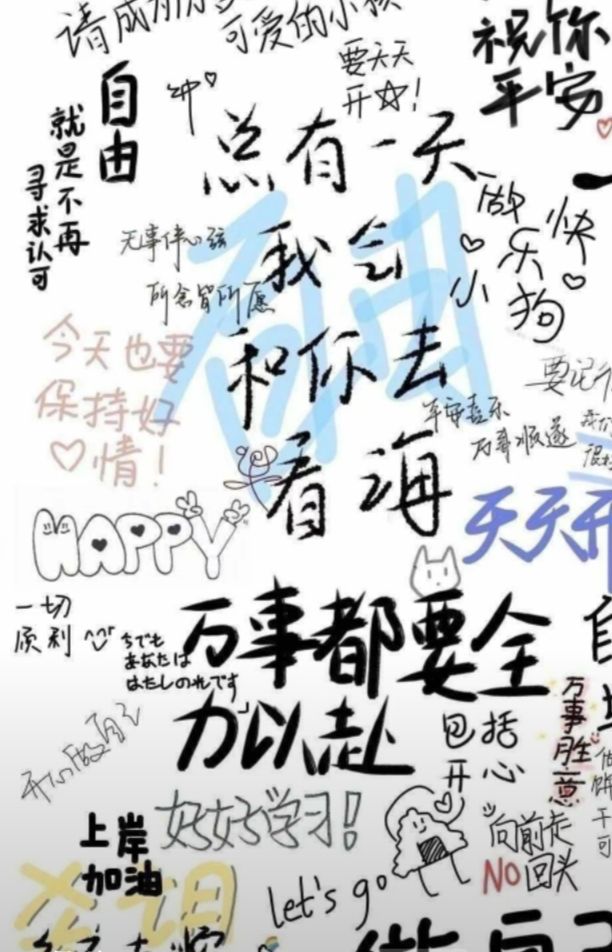 请成为
可爱的小孩
祝你
平安
要天天
开☆!
自由
冲♡
就是不再
寻求认可
总有一天
我会
和你去
看海
自由
做
快
乐
小
狗
无事绊心弦
所念皆所愿
今天也要
保持好
♡情!
要记
平安喜乐
万事顺遂
天天开
HAPPY
一切
顺利
ちでも
あなたは
はたしのれです
万事都要全
力以赴
包括
开心
万事胜意
开心做自己
好好学习!
上岸
加油
let's go
向前走
NO回头